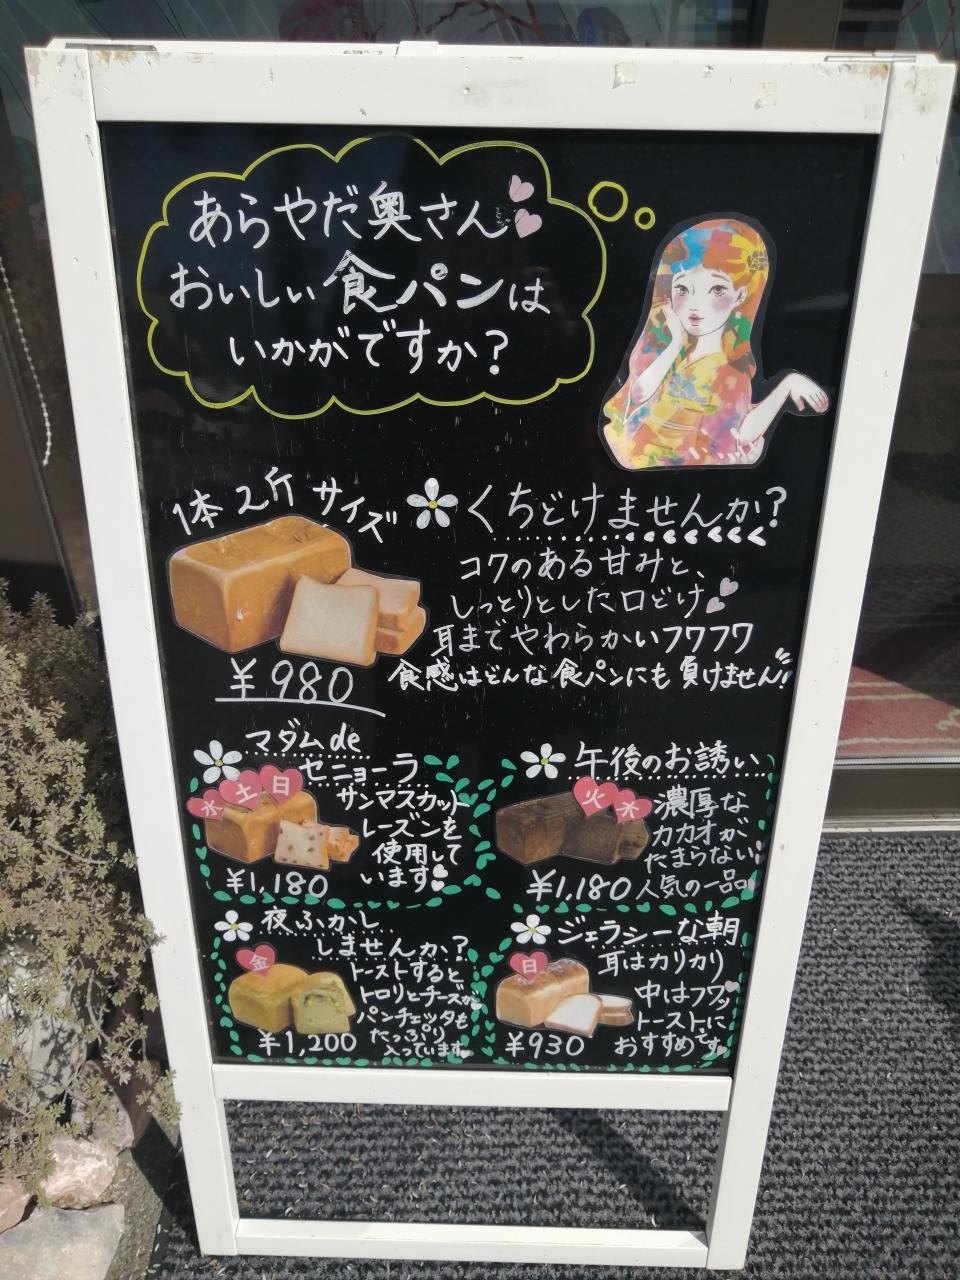 あらやだ奥さん
おいしい食パンは
いかがですか？
1本2斤サイズ
¥980
くちどけませんか？
コクのある甘みと、
しっとりとした口どけ
耳までやわらかいフワフワ
食感はどんな食パンにも負けません!!
マダムde
セニョーラ
水 土 日
サンマスカット
レーズンを
使用して
います
¥1,180
午後のお誘い
火 木
濃厚な
カカオが
たまらない
人気の一品
¥1,180
夜ふかし
しませんか？
金
トーストすると
トロリとチーズが
パンチェッタも
たっぷり
入っています
¥1,200
ジェラシーな朝
日
耳はカリカリ
中はフワッ
トーストに
おすすめです
¥930